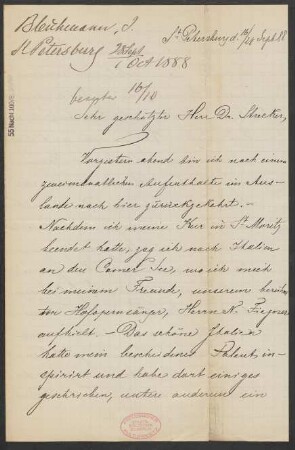 Bleichmann, J.
St Petersburg
28 Sept.
1 Oct 1888
St. Petersburg d. 16/28 Sept. 88
beantw 10/10
Sehr geschätzter Herr Dr. Stricker,
Vorgestern abend bin ich nach einem
zweimonatlichen Aufenthalte im Aus-
lande nach hier zurückgekehrt. –
Nachdem ich meine Kur in St. Moritz
beendet hatte, zog ich nach Italien
an den Comer See, wo ich mich
bei meinem Freunde, unserem berühm-
ten Hofopernsänger, Herrn N. Figner
aufhielt. – Das schöne Italien
hatte mein bescheidenes Talent in-
spirirt und habe dort einiges
geschrieben, unter anderem ein